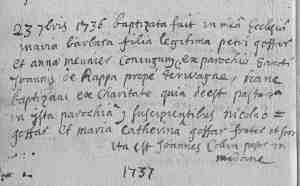 23 7bris 1736 baptizata fuit in meâ Ecclesiâ
maria barbara filia legitima petri goffar
et annæ meunier Coniugum ex parochiâ Sancti
Joannis de Rappa prope terwagne,
baptizavi ex Charitate quia deest pastor
in ista parochiâ, suscipientibus nicolao =
goffar et maria Catherina goffar frater et soror
Ita est Joannes Collin pastor in
1737